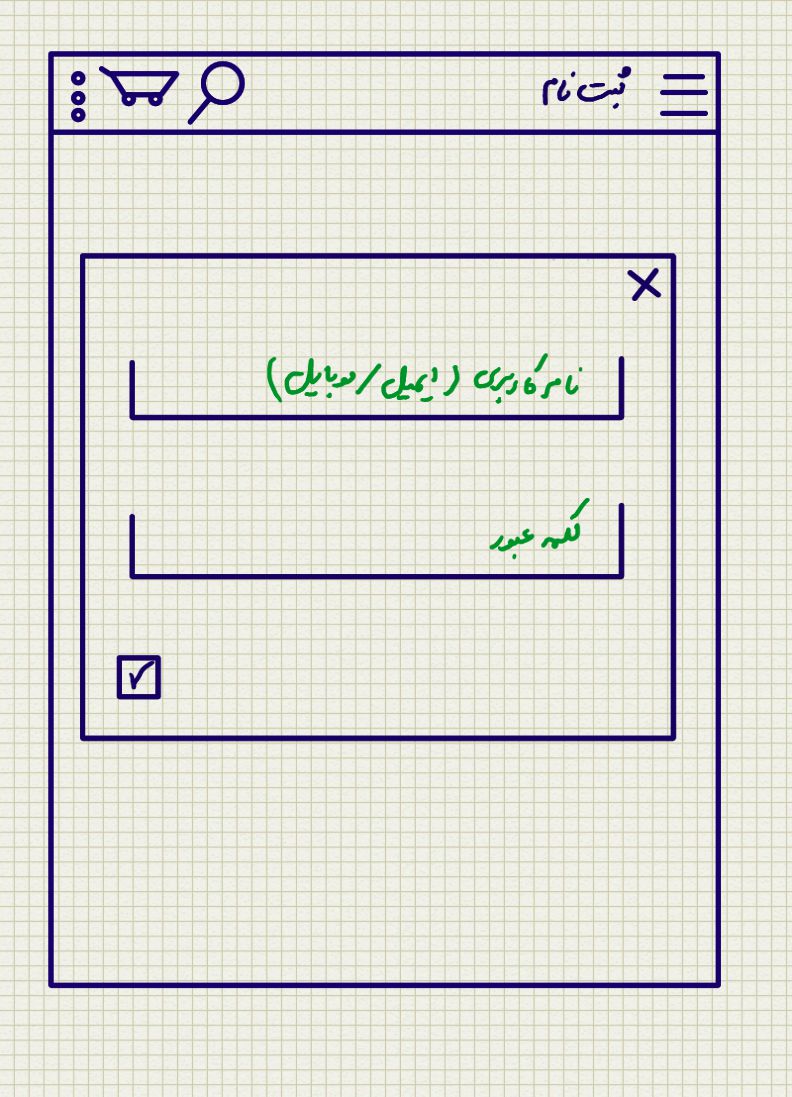 ثبت نام
نام کاربری (ایمیل/موبایل)
کلمه عبور